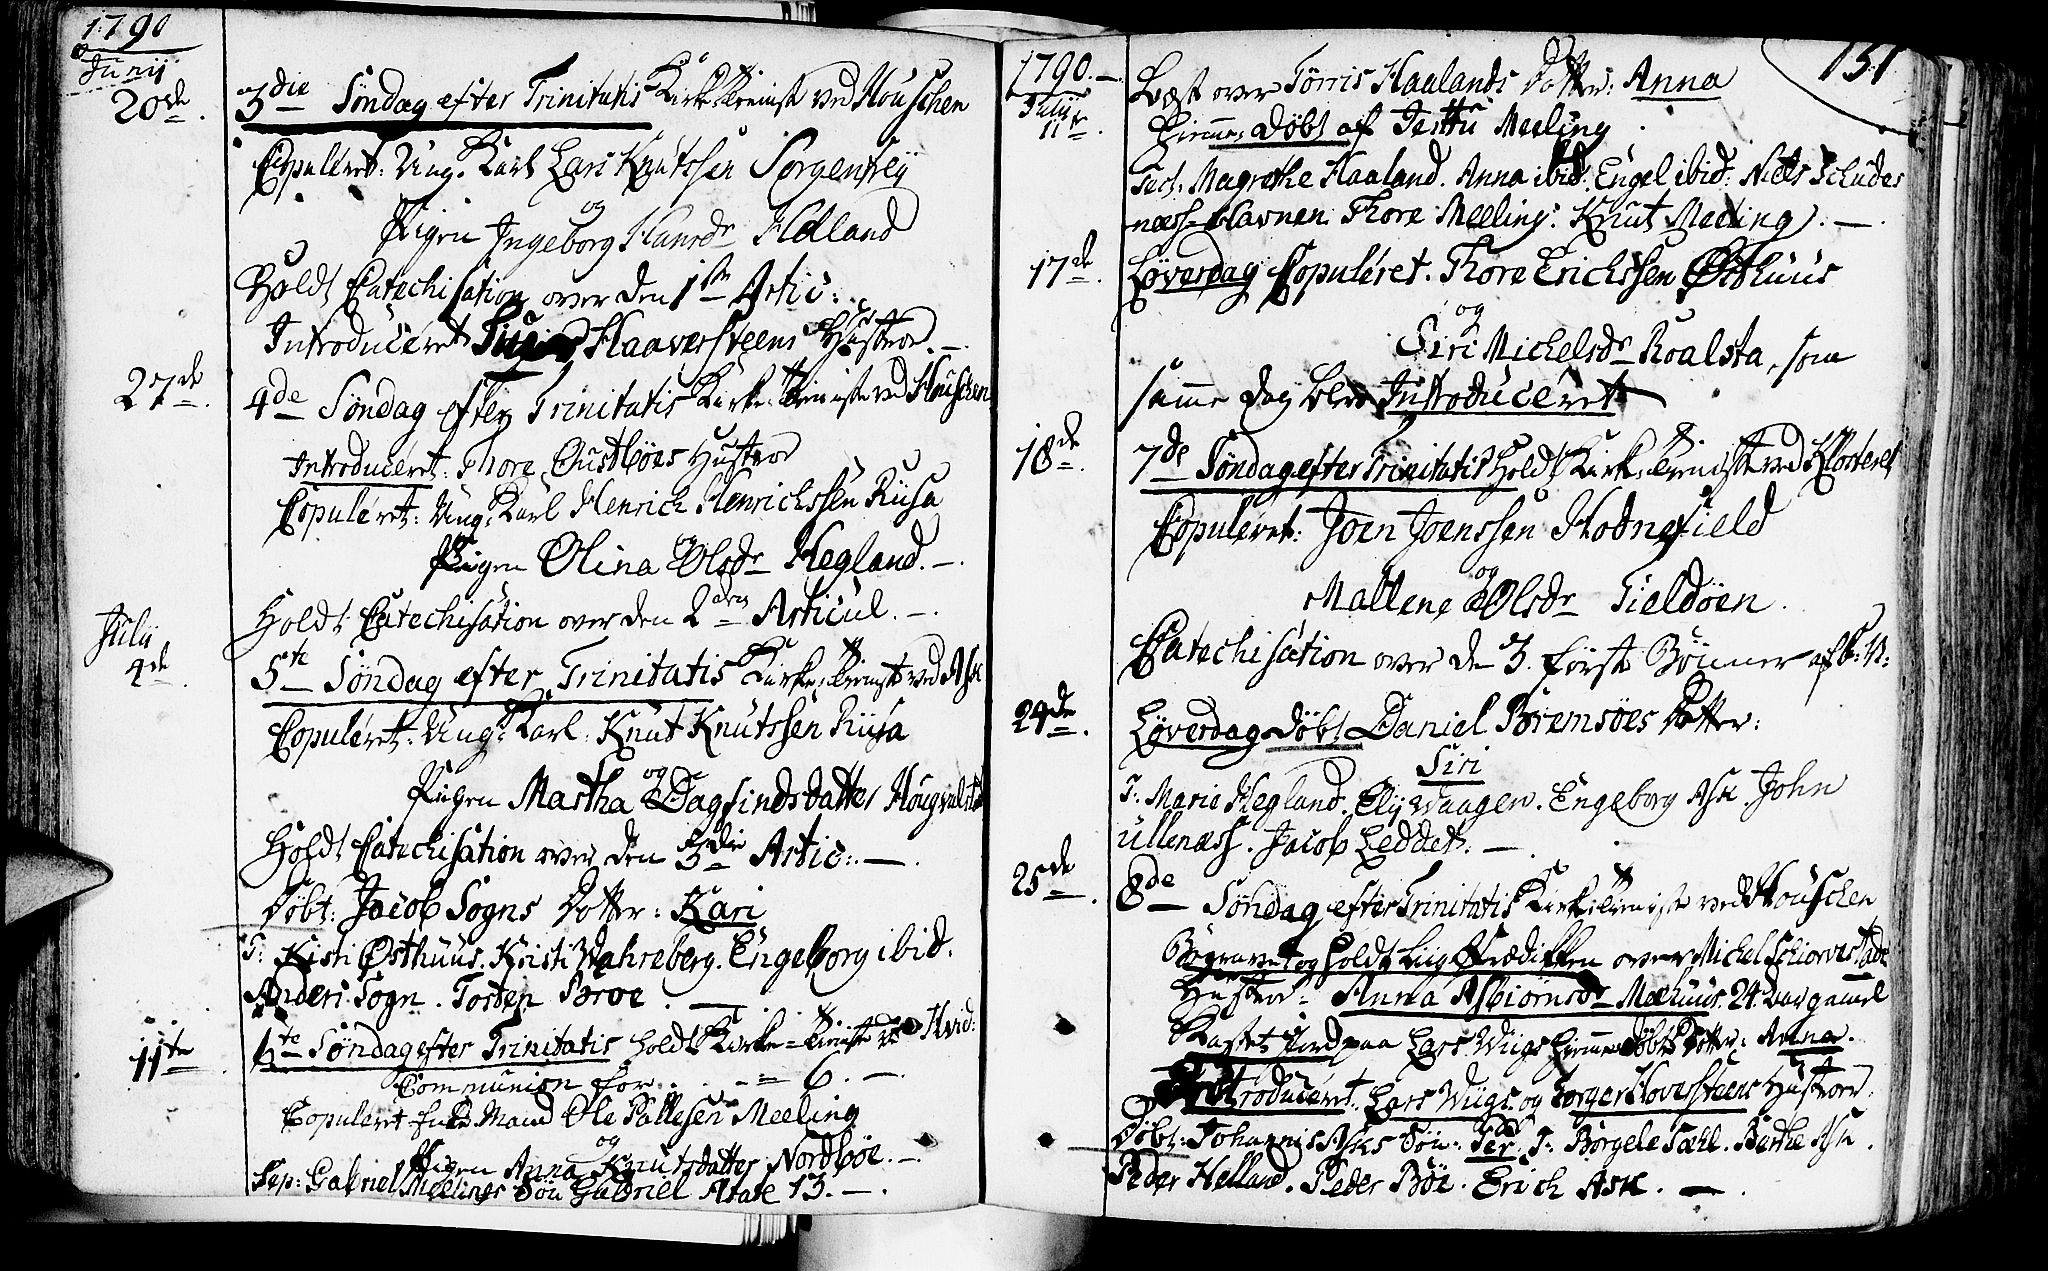 1790
Junij
20de. 3die Søndag efter Trinitatis Kirke Tieniste ved Houschen
Copuleret: Ung Karl Lars Knutssen Sorgenfrey
og
Pigen Ingeborg Hansdr Helland
Holdt Catechisation over den 1ste Artic:
Introduceret Haaversteens Hustroe. —
27de. 4de Søndag efter Trinitatis Kirke Tieniste ved Houschen
Introduceret: Thore Austbøes Hustroe
Copuleret: Ung Karl Henrich Henrichssen Riisa
og
Pigen Olina Olsdr Hegland. —.
Holdt Catechisation over den 2den Articul. —.
Julii
4de. 5te Søndag efter Trinitatis Kirke Tieniste ved Ask
Copuleret: Ung Karl Knut Knutssen Riisa
og
Pigen Martha Dagfindsdatter
Holdt Catechisation over den 3die Artic: —.
Døbt: Jacob Sogns Dotter: Kari
T: Kisti Østhuus. Kristi Wahreberg. Engeborg ibid.
Anders Sogn. Tosten Særve. —
11te. 6te Søndag efter Trinitatis holdt Kirke-Tieniste Hvid:
Communion for . . - - = 6. —.
Copuleret Mand Ole Pallesen Meeling
og
Pigen Anna Knutsdatter Nordbøe. —.
Sep: Gabriel Meelings Søn Gabriel Ætate 13. —.
151
1790. —
Julii
11te. Læst over Tørris Haalands Dotter: Anna
Hiemme døbt af Meeling
Test. Magrethe Haaland. Anna ibid: Engel ibid: Niels Schudes
næss-Havnen. Thore Meeling: Knut Meeling). —.
17de. Løverdag Copuleret. Thore Erichssen Østhuus
og
Siri Michelsdr Roalsta, som
samme dag blev Introduceret
18de. 7de Søndag efter Trinitatis holdt Kirke Tieniste ved Klosteret
Copuleret: Joen Joenssen Hodnefield
og
Mallene Olsdr Fieldøen.
Catechisation over de 3 første Bønner af
24de. Løverdag døbt Daniel Bremsøes Dotter:
Siri
T: Marie Hegland. Elij Waagen. Engeborg Ask. John
Ullenæss. Jacob Leddet. —.
25de. 8de Søndag efter Trinitatis Kirke Tieniste ved Houschen
Begravet og holdt Liig Prædikken over Michel
Hustroe: Anna Asbiørnsdr Mæhuus. 24. Aar gaml
Kastet Jord paa Lars Wiigs hiemmedøbte Dotter: Anna.
Introduceret. Lars Wiigs og Hustroer.
Døbt: Johannis Asks Søn: T: Børgele Sæhl. Ask.
Peder Helland. Peder Bøe. Erich Ask. —.